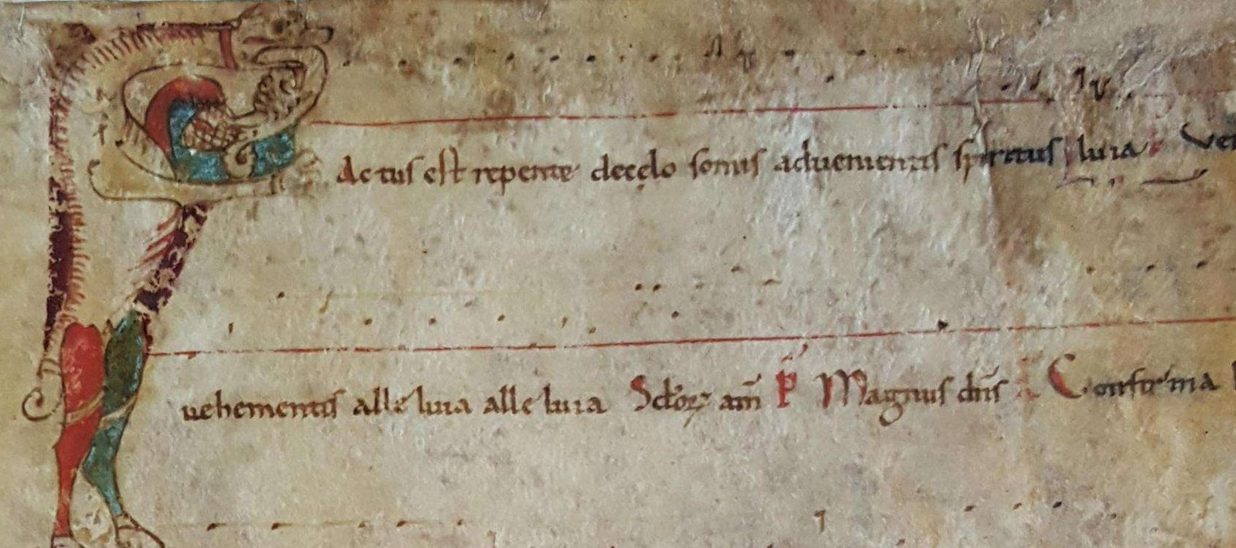 Factus est repente decęlo sonus aduenientis spiritus luia
uehementis alleluia alleluia Sc̄lor̄ꝝ am̄ P̄ Magnus dn̄s Confirma